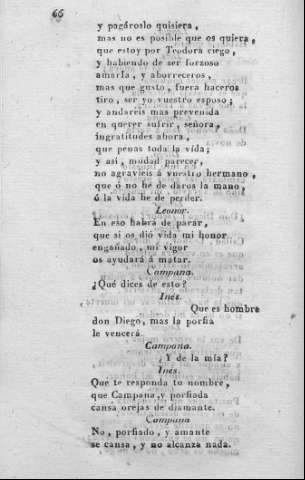 66
y pagároslo quisiera,
mas no es posible que os quiera,
que estoy por Teodora ciego,
y habiendo de ser forzoso
amarla, y aborreceros,
mas que gusto, fuera haceros
tiro, ser yo vuestro esposo;
y andareis mas prevenida
en querer sufrir, señora,
ingratitudes ahora,
que penas toda la vida;
y asi, mudad parecer,
no agravieis á vuestro hermano,
que ó no he de daros la mano,
ó la vida he de perder.
Leonor.
En eso habrá de parar,
que si os dió vida mi honor
engañado, mi vigor
os ayudará á matar.
Campana.
¿Qué dices de esto?
Inés.
Que es hombre
don Diego, mas la porfia
le vencerá.
Campana.
¿Y de la mia?
Inés.
Que te responda tu nombre,
que Campana y porfiada
cansa orejas de diamante.
Campana
No, porfiado, y amante
se cansa, y no alcanza nada.